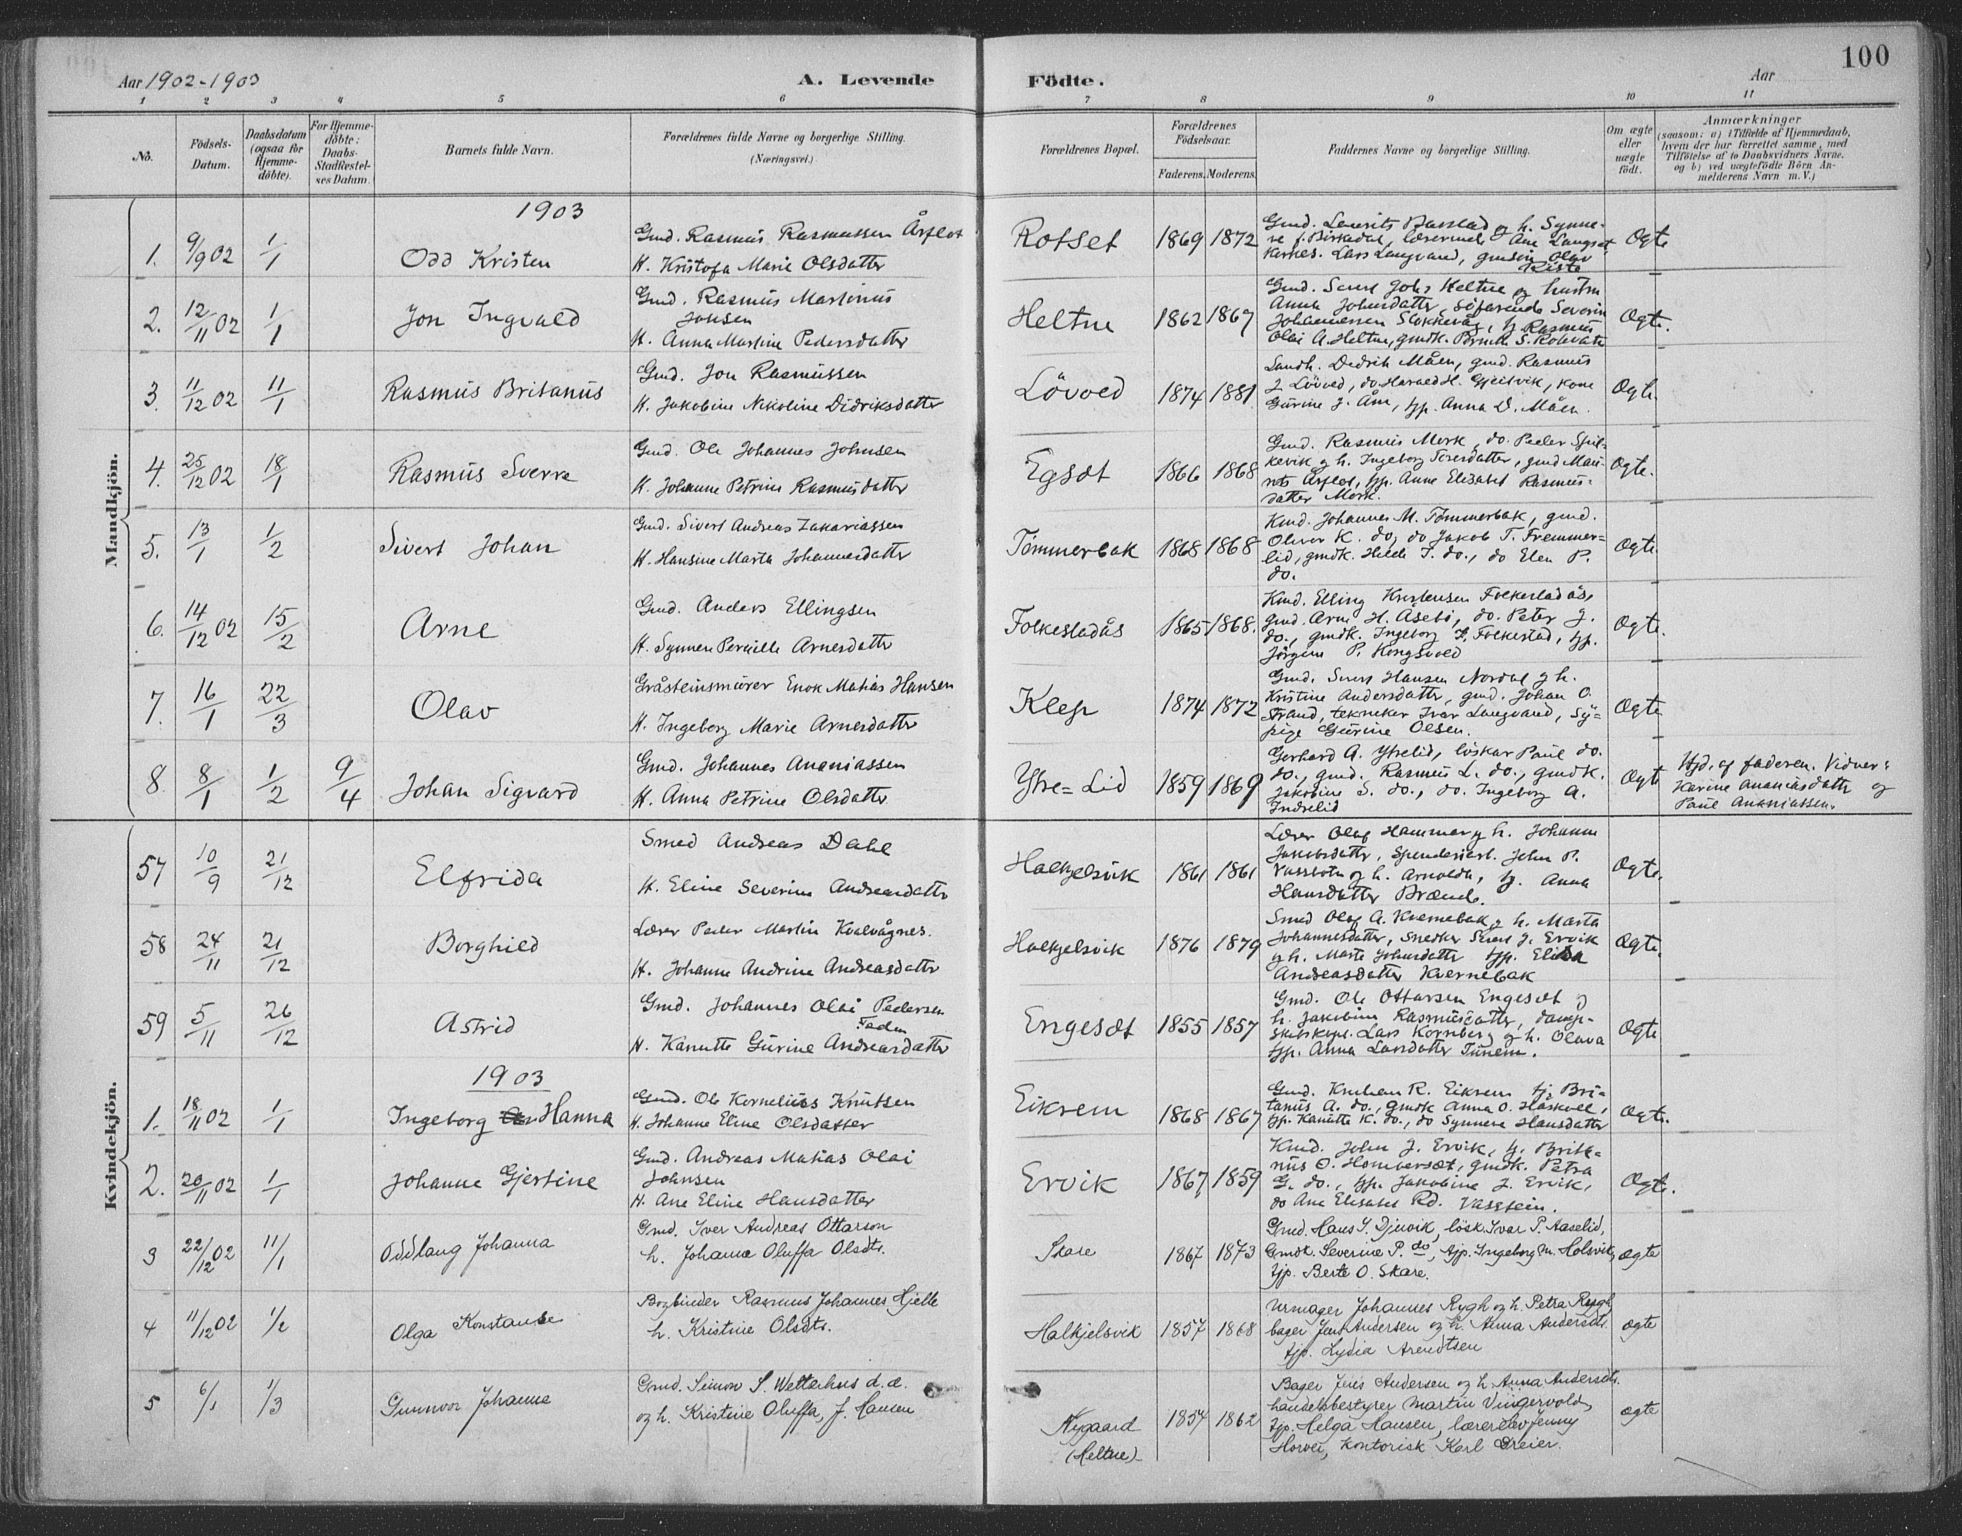 100
Aar 1902-1903
A. Levende Födte.
Aar
1 2 3 4 5 6 7 8 9 10 11
No.
Födsels-
Datum.
Daabsdatum
(ogsaa for
Hjemme-
döbte).
For Hjemme-
döbte:
Daabs-
Stadfæstel-
ses Datum.
Barnets fulde Navn.
Forældrenes fulde Navne og borgerlige Stilling.
(Næringsvei.)
Forældrenes Bopæl.
Forældrenes
Födselsaar.
Faderens. Moderens.
Faddernes Navne og borgerlige Stilling.
Om ægte
eller
uægte
födt.
Anmærkninger
(saasom: a) i Tilfælde af Hjemmedaab,
hvem der har forrettet samme, med
Tilföielse af to Daabsvidners Navne.
og b) ved uægtefödte Börn An-
melderens Navn m. V.)
Mandkjön.
1903
1. 9/9 02 1/1 Odd Kristen
Gmd. Rasmus Rasmussen Årflot
H. Kristofa Marie Olsdatter
Rotset 1869 1872
Gmd. Laurits Barstad og h. Synne-
ve f. Birkedal, lærerinde Ane Langset,
Lars Langvand, Olav
Riste
Ogte
2. 12/11 02 1/1 Jon Ingvald
Gmd. Rasmus Martinus
Jonsen
H. Anna Martine Pedersdatter
Heltne 1862 1867
Gmd. Sivert Johs Heltne og hustru
Anna Johnsdatter, söfarende Severin
Johannessen Slokkevåg, tj. Rasmus
Olai A. Heltne, gmdk.
Ogte.
3. 11/12 02 11/1 Rasmus Britanus
Gmd. Jon Rasmussen
H. Jakobine Nikoline Didriksdatter
Lövoed 1874 1881
Landh. Didrik Måen, gmd. Rasmus
J. Lövoed, do Harald H. Gjeitvik, kone
Gurine J. Åm, tjp. Anna D. Måen.
Ogte.
4. 25/12 02 18/1 Rasmus Sverre
Gmd. Ole Johannes Johnsen
H. Johanne Petrine Rasmusdatter
Egsæt 1866 1868
Gmd. Rasmus Mork, do. Peder Spil-
kevik og h. Ingeborg Iversdatter, gmd Mau-
rits Årflot, tjp. Anne Elisabet Rasmus-
datter Mork.
Ogte.
5. 13/1 1/2 Sivert Johan
Gmd. Sivert Andreas Zakariassen
H. Hansine Marta Johannesdatter
Tömmerbak 1868 1868
Kmd. Johannes M. Tömmerbak, gmd.
Oliver K. do, do Jakob T. Fremmer-
lid, gmdk. Hilde T. do., do Elen P.
do.
Ogte.
6. 14/12 02 15/2 Arne
Gmd. Anders Ellingsen
H. Synnen Pernille Arnesdatter
Folkestadås 1865 1868.
Kmd. Elling Kristensen Folkestadås,
gmd. Arne H. Åsebö, do. Peter J.
do., gmdk. Ingeborg J. Folkestad, tjp.
Jörgine P. Kongsvoed
Ogte.
7. 16/1 22/3 Olav
Gråsteinsmurer Enok Matias Hansen
H. Ingeborg Marie Arnesdatter
Klep 1874 1872
Gmd. Sivert Hansen Nordal og h.
Kristine Andersdatter, gmd. Johan O.
Strand, tekniker Ivar Langvand, Sy-
pige Gurine Olsen.
Ogte.
8. 8/1 1/2 9/4 Johan Sigvard
Gmd. Johannes Ananiassen
H. Anna Petrine Olsdatter
Ytre-Lid 1859 1869
Gerhard A. Ytrelid, löskar Paul do.
do., gmd. Rasmus L. do., gmdk.
Jakobine S. do., do. Ingeborg A.
Indrelid
Ogte
Hjd. af faderen. Vidner:
Karine Ananiasdatter og
Paul Ananiassen.
Kvindekjön.
57 10/9 21/12 Elfrida
Smed Andreas Dahl
H. Eline Severine Andreasdatter
Halkjelsvik 1861 1861
Lærer Olaf Hammer og h. Johanne
Jakobsdatter, John P.
Vassbotn og h. Arnolda, tj. Anna
Hansdatter Brænde.
Ogte.
58 24/11 21/12 Borghild
Lærer Peder Martin Kvalvågnes.
H. Johanne Andrine Andreasdatter
Halkjelsvik 1876 1879
Smed Olaf A. Kvernebak og h. Marta
Johannesdatter, Snedker Sivert J. Ervik
og h. Marte Johnsdatter tjp. Elisa
Andreasdatter Kvernebak
Ogte.
59 5/11 26/12 Astrid
Gmd. Johannes Olai Pedersen
H. Kanutte Gurine Andreasdatter
Engesæt 1855 1857
Gmd. Ole Ottarsen Engesæt og
h. Jakobine Rasmusdatter, damp-
Lars Kornberg og h. Olava
tjp. Anna Larsdatter Tunem.
Ogte
1903
1. 18/11 02 1/1 Ingeborg Hanna
Gmd. Ole Kornelius Knutsen
H. Johanne Eline Olsdatter
Eikrem 1868 1867
Gmd. Knut R. Eikrem tj. Bri-
tanus A. do., gmdk Anna O. Håskoel,
tjp. Kanutte K. do., do Synneve Hansdatter
Ogte.
2. 20/11 02 1/1 Johanne Gjertine
Gmd. Andreas Matias Olai
Johnsen
H. Ane Eline Hansdatter
Ervik 1867 1859
Kmd. John J. Ervik, tj. Brita-
nus O. Hombersæt, gmdk. Petra
G. do., tjp. Jakobine J. Ervik,
do Ane Elisabet Rd. Vasstein.
Ogte.
3 22/12 02 11/1 Oddlaug Johanna
Gmd. Iver Andreas Ottarson
h. Johanne Oluffa Olsdtr.
Skare 1867 1873
Gmd. Hans I. Djuvik, lösk. Ivar P. Aaselid,
Gmdk. Severine P. do, tjp. Ingeborg M. Holsvik,
tjp. Berte O. Skare.
ægte
4 11/12 02 1/2 Olga Konstanse
Bogbinder Rasmus Johannes Hjelle
h. Kristine Olsdtr.
Halkjelsvik 1857 1868
Urmager Johannes Rygh og h. Petra Rygh,
bager Jens Andersen og h. Anna Andersdtr.
tjp. Lydia Arendtsen
ægte
5 6/1 1/3 Gunnvor Johanne
Gmd. Simon S. Welterhus d. æ.
og h. Kristine Oluffa, f. Hansen
Nygaard
(Heltne) 1857 1862
Bager Jens Andersen og h. Anna Andersdtr.
handelsbestyrer Martin Vingervold,
tjp. Helga Hansen, lærerinde Jenny
Horvei, kontorist Karl Dreier.
ægte